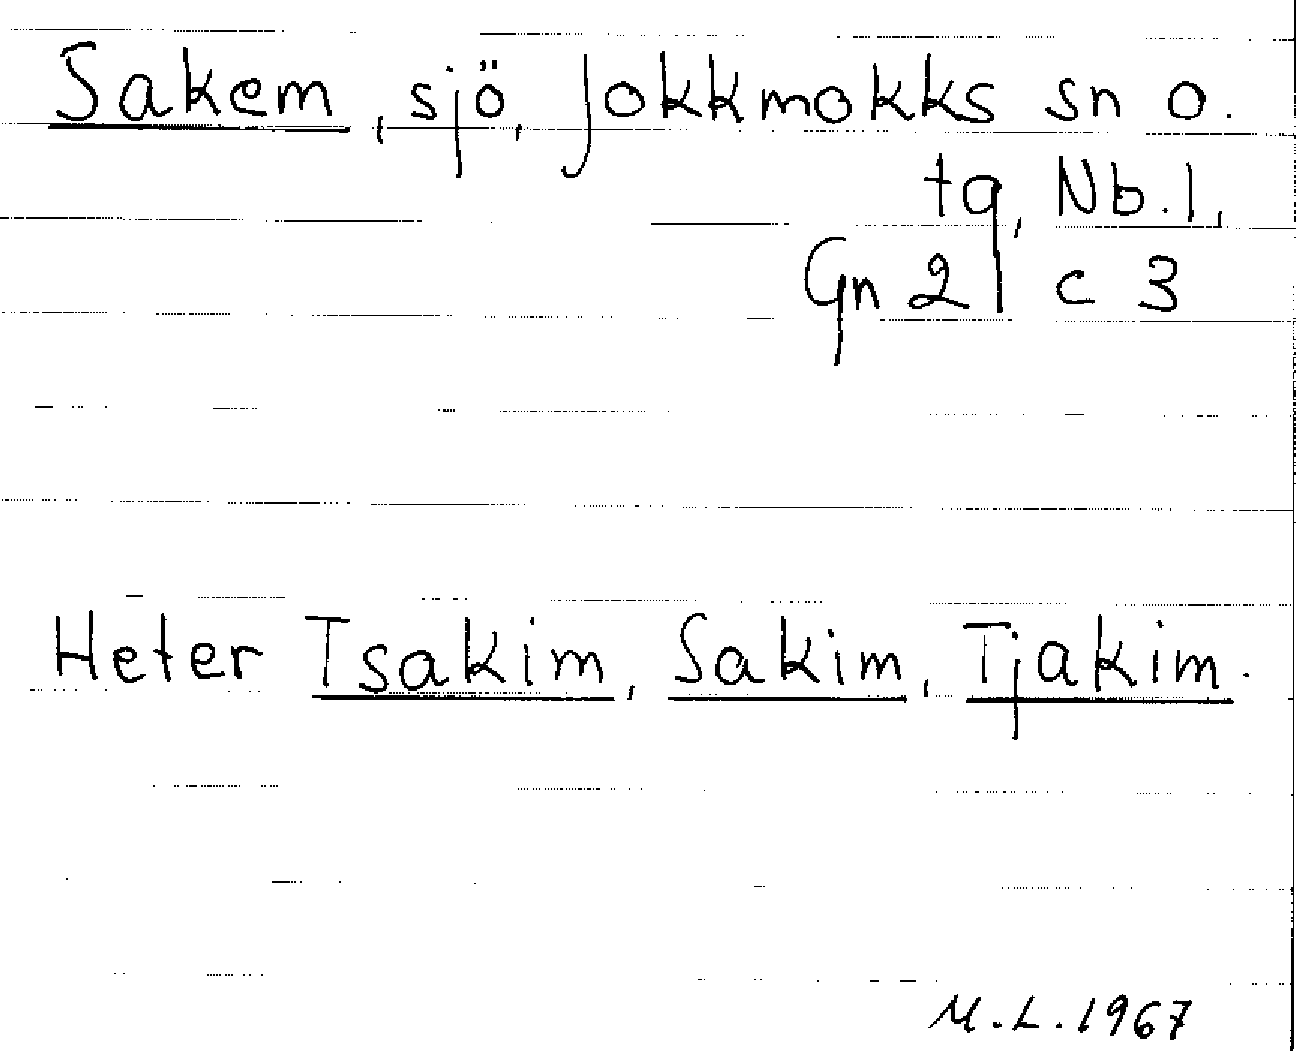 Sakem, sjö, Jokkmokks sn o.
tg, Nb.l.,
Gn 21 c 3
Heter Tsakim, Sakim, Tjakim.
M.L. 1967